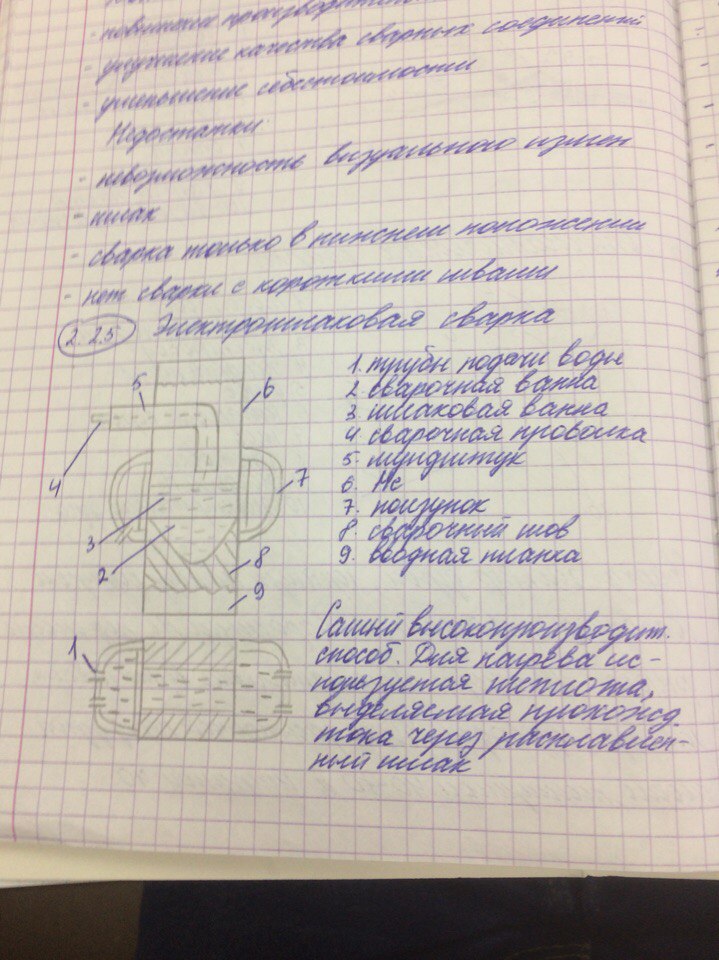 - повышение
- улучшение качества сварных соединений
- уменьшение себестоимости
Недостатки
- невозможность визуального измен
- шлак
- сварка только в нижнем положении
- нет сварки с короткими швами
2.2.5 Электрошлаковая сварка
1. трубы подачи воды
2 сварочная ванна
3 шлаковая ванна
4 сварочная проволка
5. мундштук
6. Ме
7. ползунок
8. сварочный шов
9. вводная планка
5
6
4
7
3
2
8
9
1
Самый высокопроизводит.
способ. Для нагрева ис-
пользуется теплота,
выделяемая прохожд.
тока через расплавлен-
ный шлак